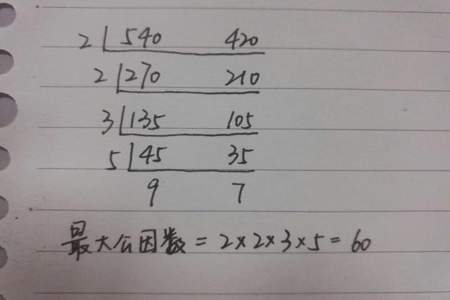 2 540 420
2 270 210
3 135 105
5 45 35
9 7
最大公因数 = 2×2×3×5 = 60